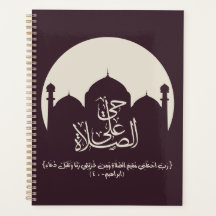 حي
على
الصلاة
{ رب اجعلني مقيم الصلاة ومن ذريتي ربنا وتقبل دعاء }
(إبراهيم-٤٠)